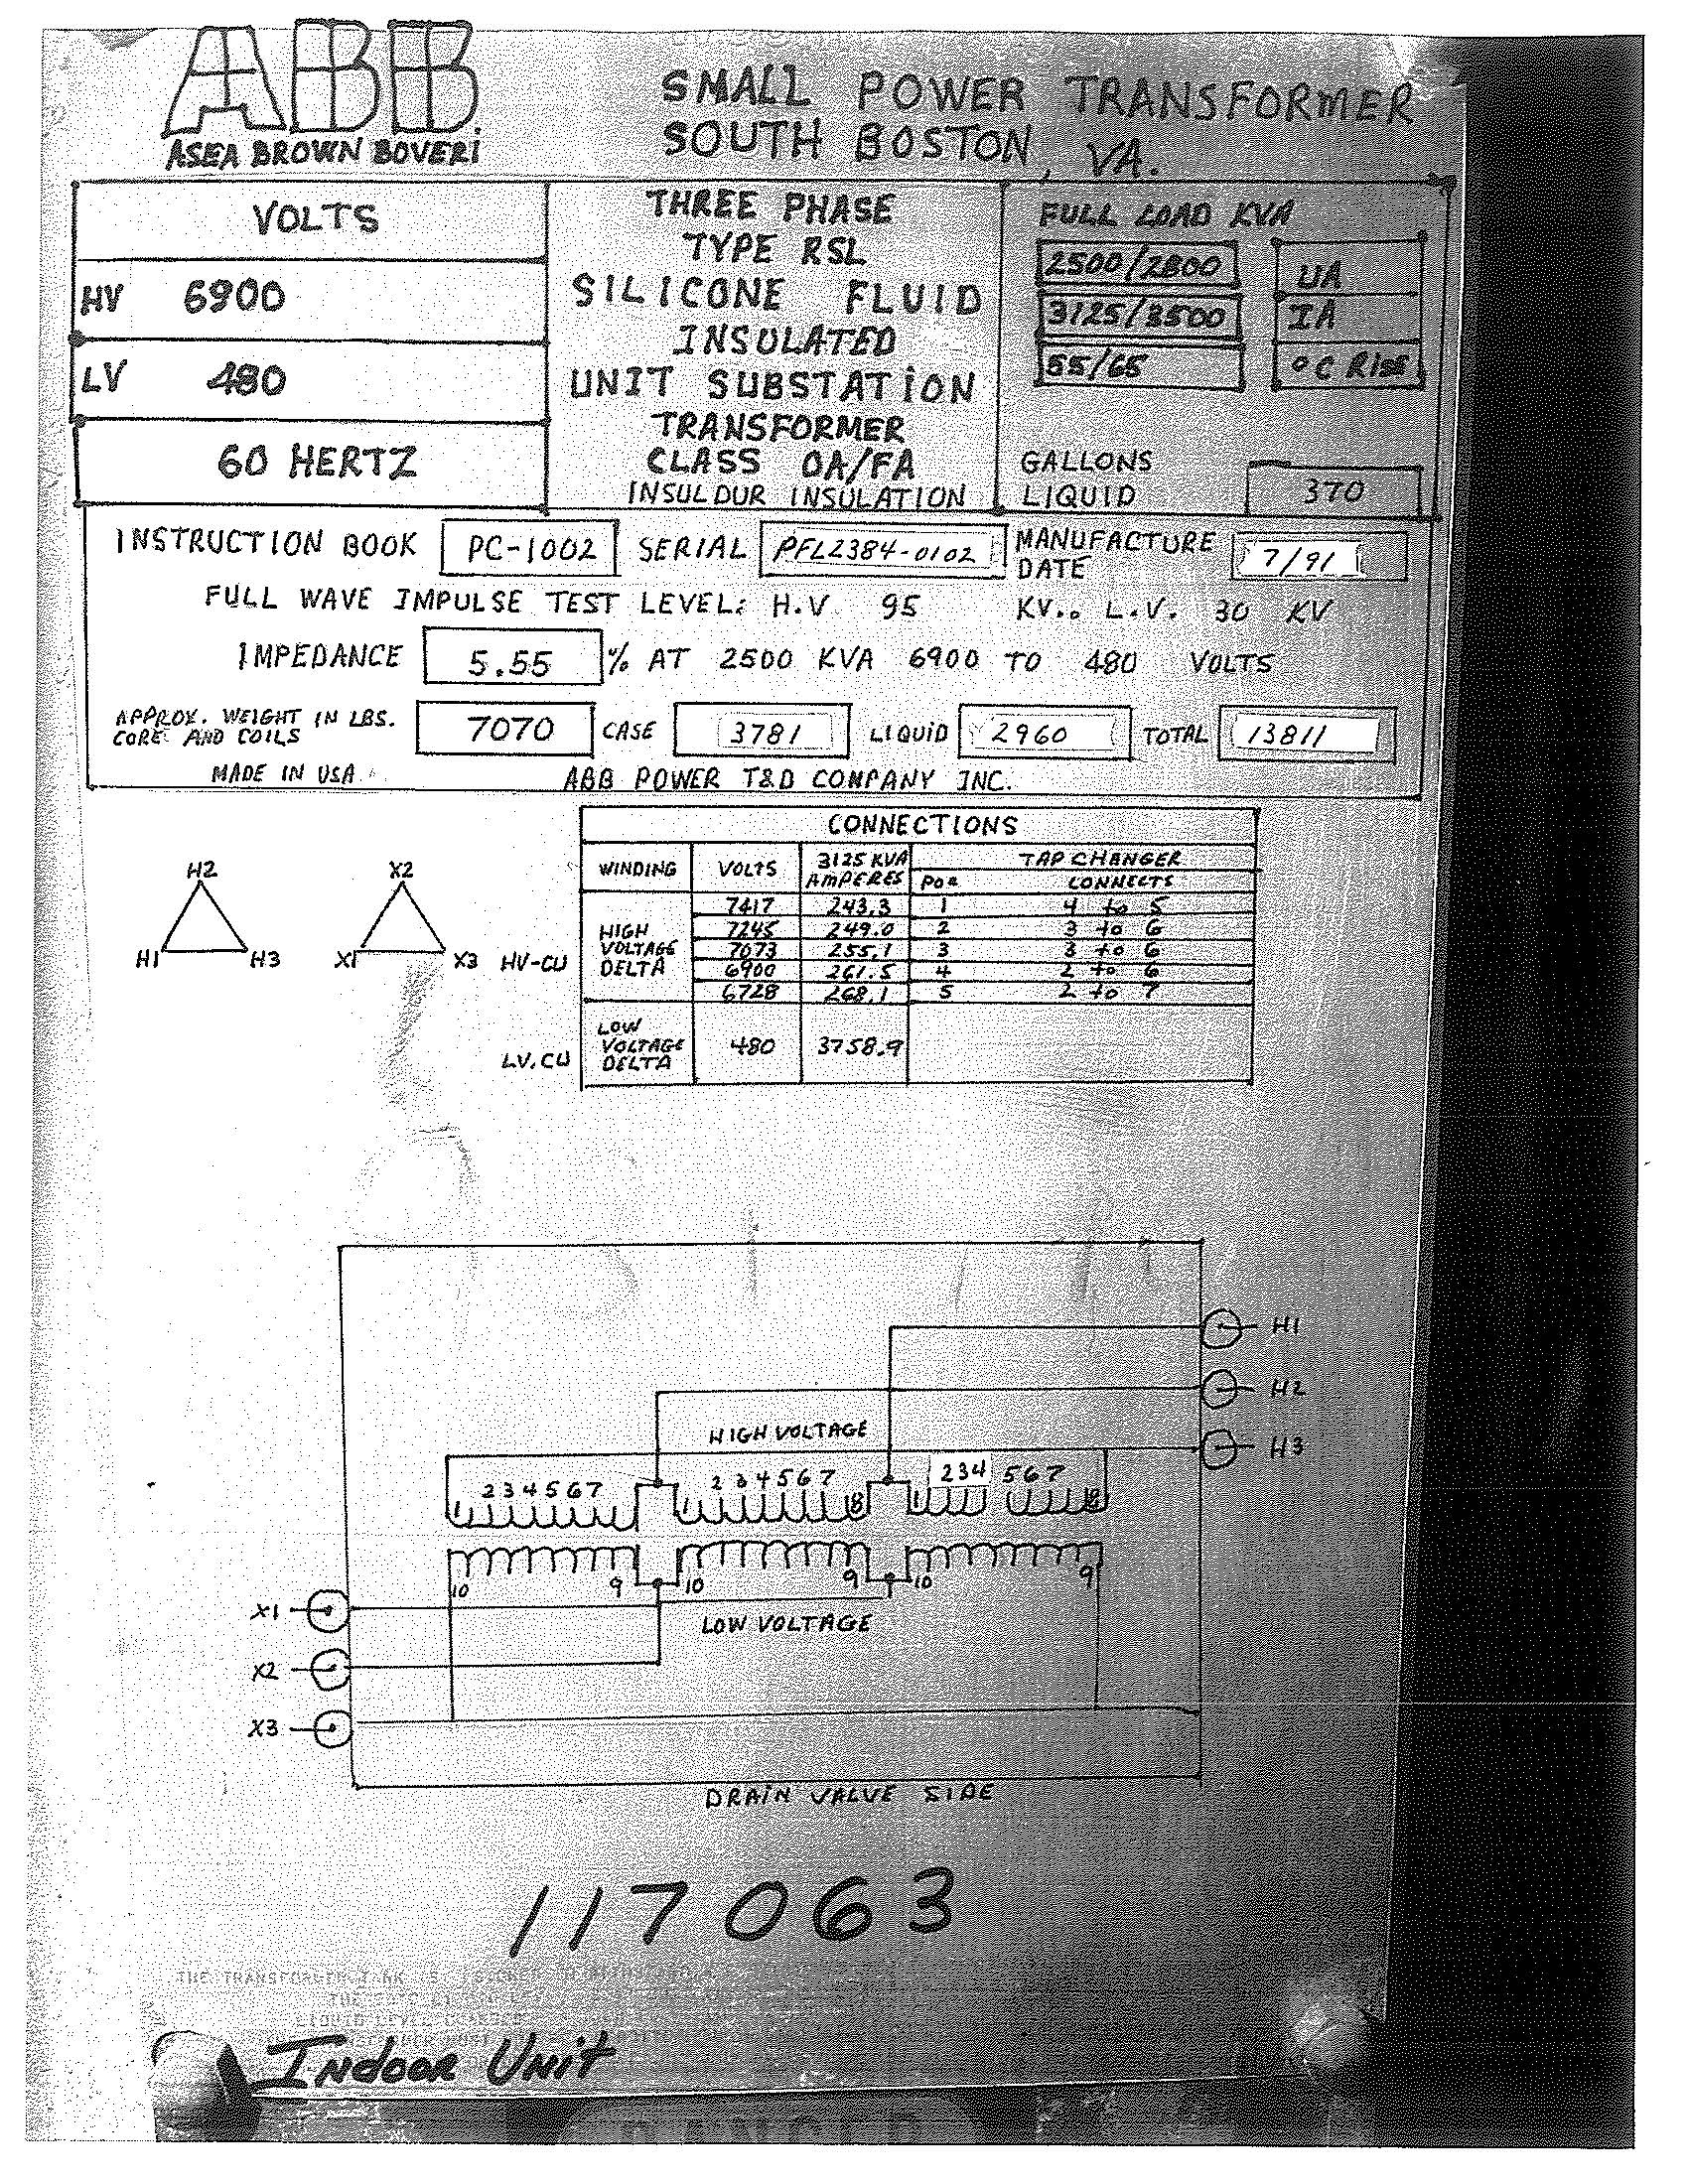 ABB
ASEA BROWN BOVERI
SMALL POWER TRANSFORMER
SOUTH BOSTON, VA.
VOLTS
HV 6900
LV 480
60 HERTZ
THREE PHASE
TYPE RSL
SILICONE FLUID
INSULATED
UNIT SUBSTATION
TRANSFORMER
CLASS OA/FA
INSULDUR INSULATION
FULL LOAD KVA
2500/2800 UA
3125/3500 IA
55/65 °C RISE
GALLONS
LIQUID 370
INSTRUCTION BOOK PC-1002 SERIAL PFL2384-0102 MANUFACTURE DATE 7/91
FULL WAVE IMPULSE TEST LEVEL: H.V. 95 KV.. L.V. 30 KV
IMPEDANCE 5.55 % AT 2500 KVA 6900 TO 480 VOLTS
APPROX. WEIGHT IN LBS.
CORE AND COILS 7070 CASE 3781 LIQUID 2960 TOTAL 13811
MADE IN USA. ABB POWER T&D COMPANY INC.
CONNECTIONS
WINDING VOLTS 3125 KVA AMPERES TAP CHANGER
POS CONNECTS
HV-CU HIGH VOLTAGE DELTA
7417 243.3 1 4 to 5
7245 249.0 2 3 to 6
7073 255.1 3 3 to 6
6900 261.5 4 2 to 6
6728 268.1 5 2 to 7
LV.CU LOW VOLTAGE DELTA 480 3758.9
H2 X2
H1 H3 X1 X3
H1
H2
HIGH VOLTAGE
H3
1 2 3 4 5 6 7 1 2 3 4 5 6 7 8 1 2 3 4 5 6 7 8
10 9 10 9 10 9
X1
LOW VOLTAGE
X2
X3
DRAIN VALVE SIDE
117063
THE TRANSFORMER
Indoor Unit